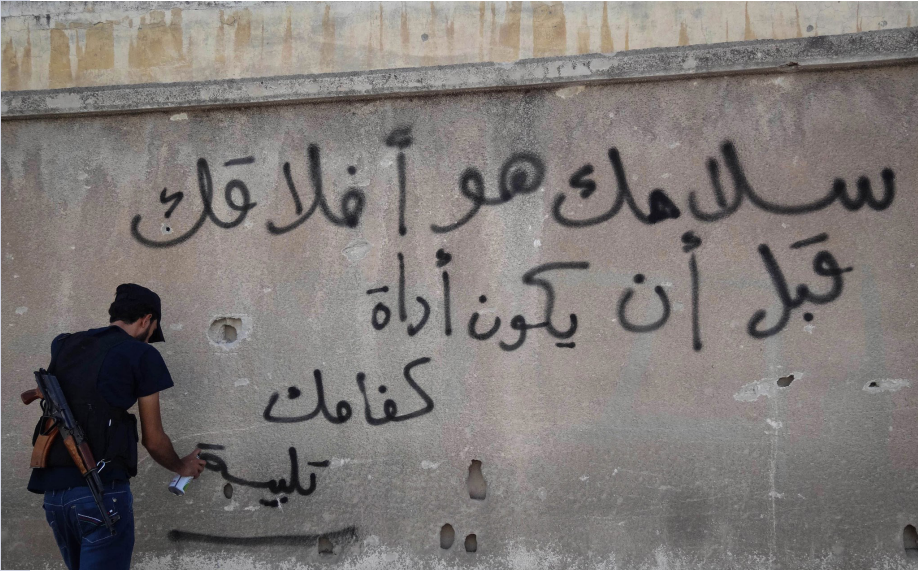 سلاحك هو أخلاقك
قبل أن يكون أداة
كفاحك
تلبيسة